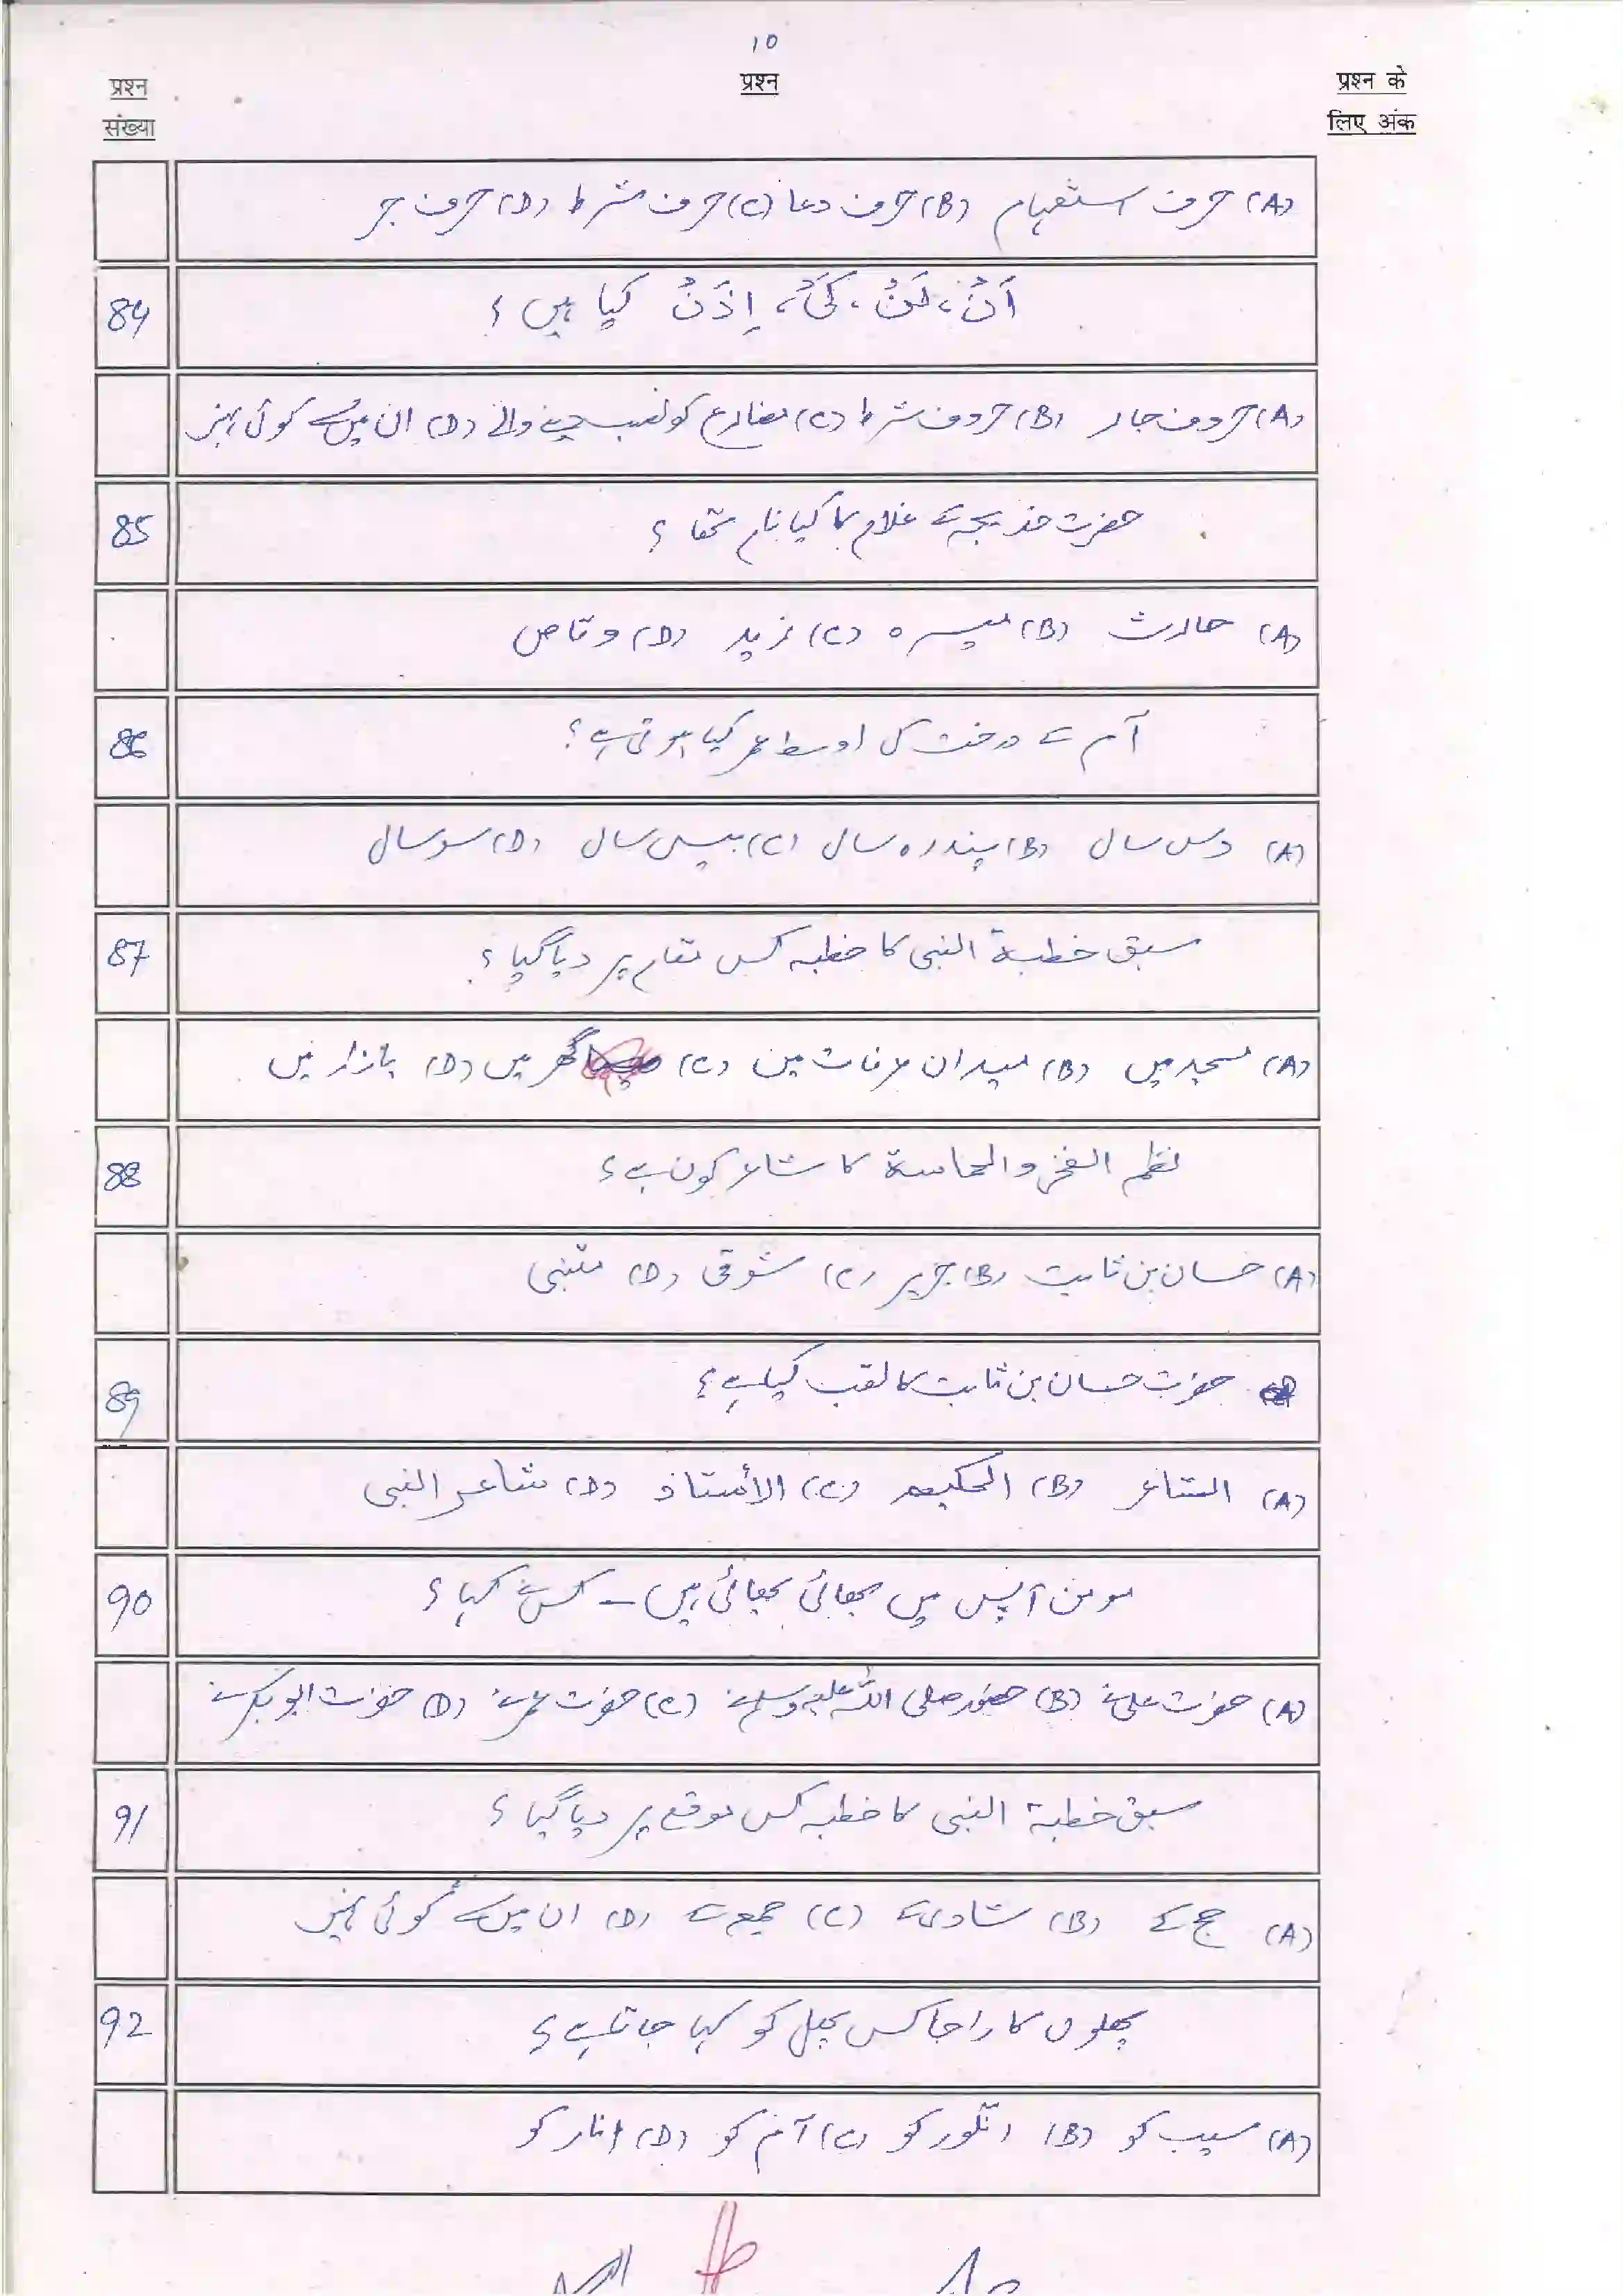 10
प्रश्न
संख्या
प्रश्न
प्रश्न के
लिए अंक
(A) حرف استفہام (B) حرف دعا (C) حرف شرط (D) حرف جر
84
اَنْ، لَنْ، کَیْ، اِذَنْ کیا ہیں؟
(A) حروف جار (B) حروف شرط (C) مضارع کو نصب دینے والے (D) ان میں سے کوئی نہیں
85
حضرت خدیجہ کے غلام کا کیا نام تھا؟
(A) حارث (B) میسرہ (C) زید (D) وقاص
86
آم کے درخت کی اوسط عمر کیا ہوتی ہے؟
(A) دس سال (B) پندرہ سال (C) بیس سال (D) سو سال
87
سبق خطبة النبی کا خطبہ کس مقام پر دیا گیا؟
(A) مسجد میں (B) میدان عرفات میں (C) گھر میں (D) بازار میں
88
نظم الفخر والحماسة کا شاعر کون ہے؟
(A) حسان بن ثابت (B) جریر (C) شوقی (D) متنبی
89
حضرت حسان بن ثابت کا لقب کیا ہے؟
(A) الشاعر (B) الحکیم (C) الأستاذ (D) شاعر النبی
90
مومن آپس میں بھائی بھائی ہیں – کس نے کہا؟
(A) حضرت علی نے (B) حضور صلی اللہ علیہ وسلم نے (C) حضرت عمر نے (D) حضرت ابوبکر نے
91
سبق خطبة النبی کا خطبہ کس موقع پر دیا گیا؟
(A) حج کے (B) شادی کے (C) جمعہ کے (D) ان میں سے کوئی نہیں
92
پھلوں کا راجا کس پھل کو کہا جاتا ہے؟
(A) سیب کو (B) انگور کو (C) آم کو (D) انار کو